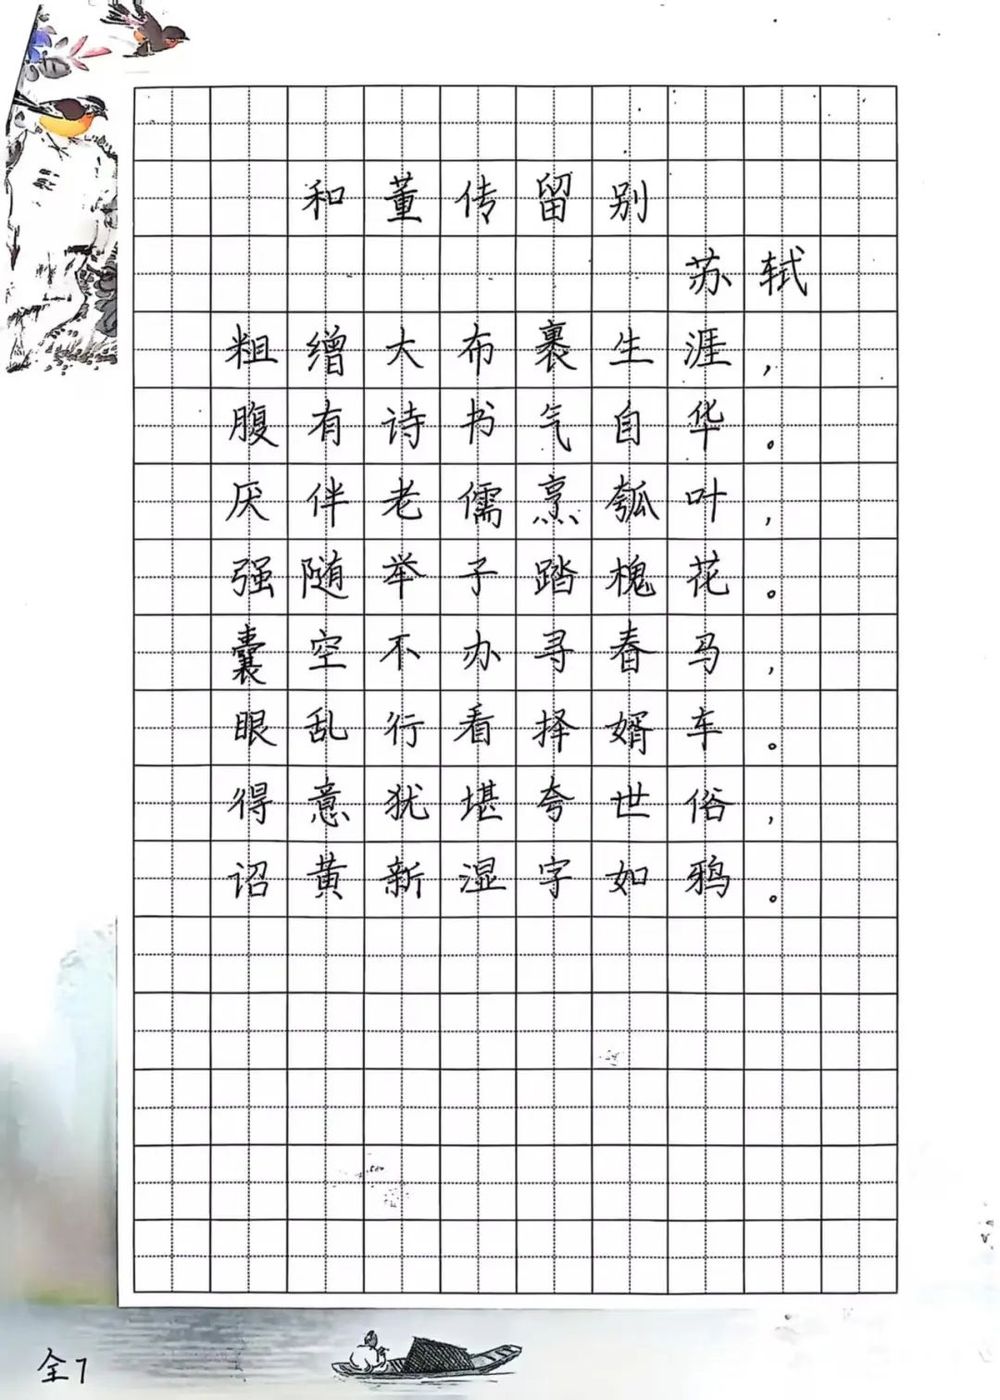 和董传留别
苏轼
粗缯大布裹生涯，
腹有诗书气自华。
厌伴老儒烹瓠叶，
强随举子踏槐花。
囊空不办寻春马，
眼乱行看择婿车。
得意犹堪夸世俗，
诏黄新湿字如鸦。
全7